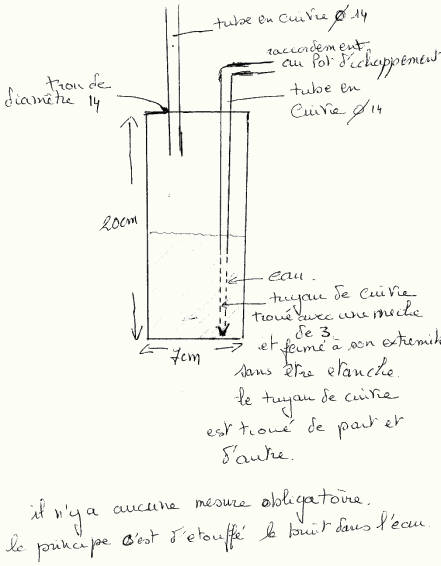 tube en cuivre Ø 14
raccordement
au Pot d'échappement
tube en
cuivre Ø 14
trou de
diamètre 14
20cm
eau.
tuyau de cuivre
troué avec une mèche
de 3
et fermé à son extremité
7cm
sans être etanche.
le tuyau de cuivre
est troué de part et
d'autre.
il n'y a aucune mesure obligatoire.
le principe c'est d'etouffé le bruit dans l'eau.